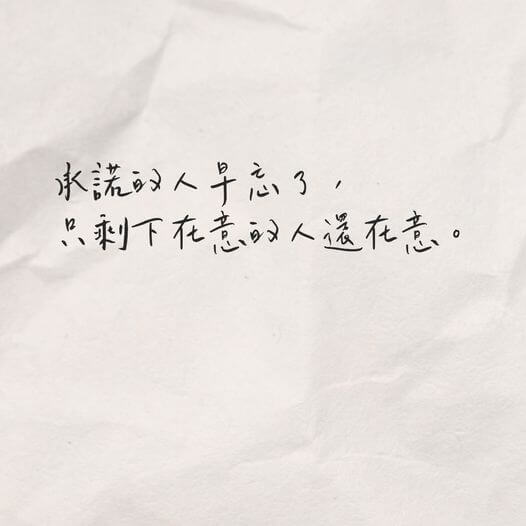 承諾的人早忘了，
只剩下在意的人還在意。